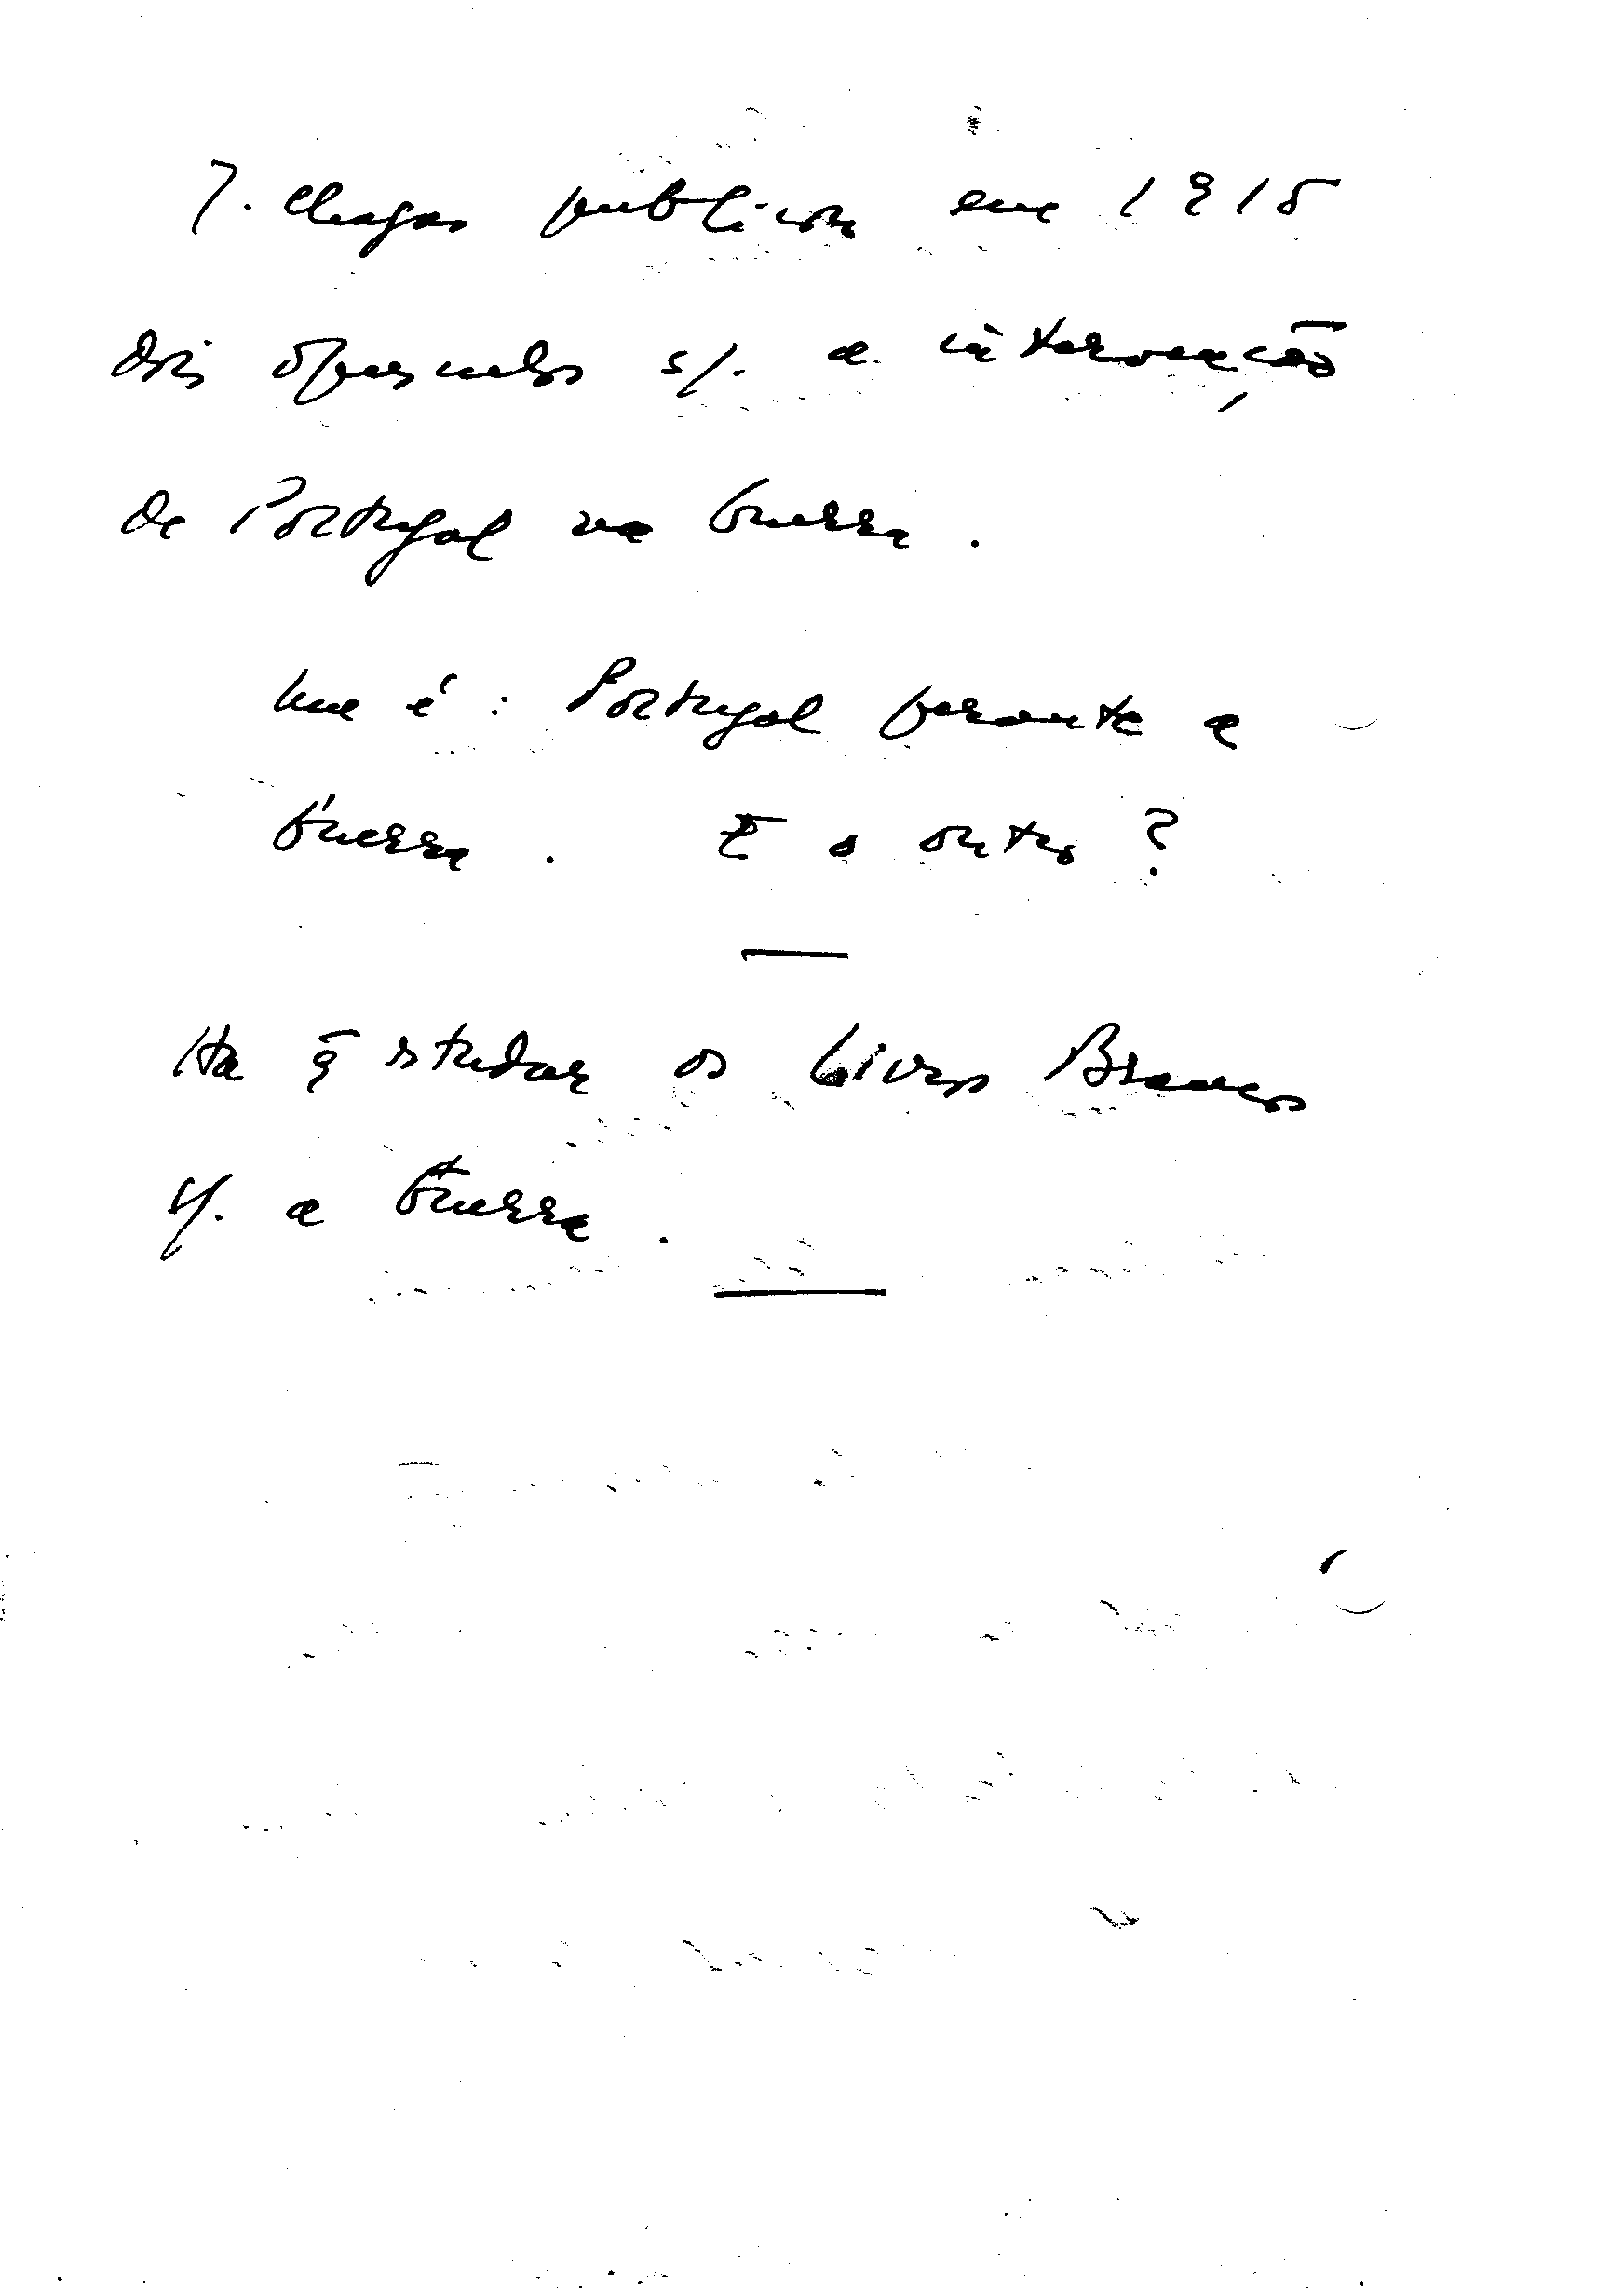 J. Chagas publicou em 1915
dois opusculos s/. a intervenção
de Portugal na Guerra.
Um é: Portugal perante a
Guerra. E o outro?
Ha q̃ estudar os Livros Brancos
s/. a Guerra.